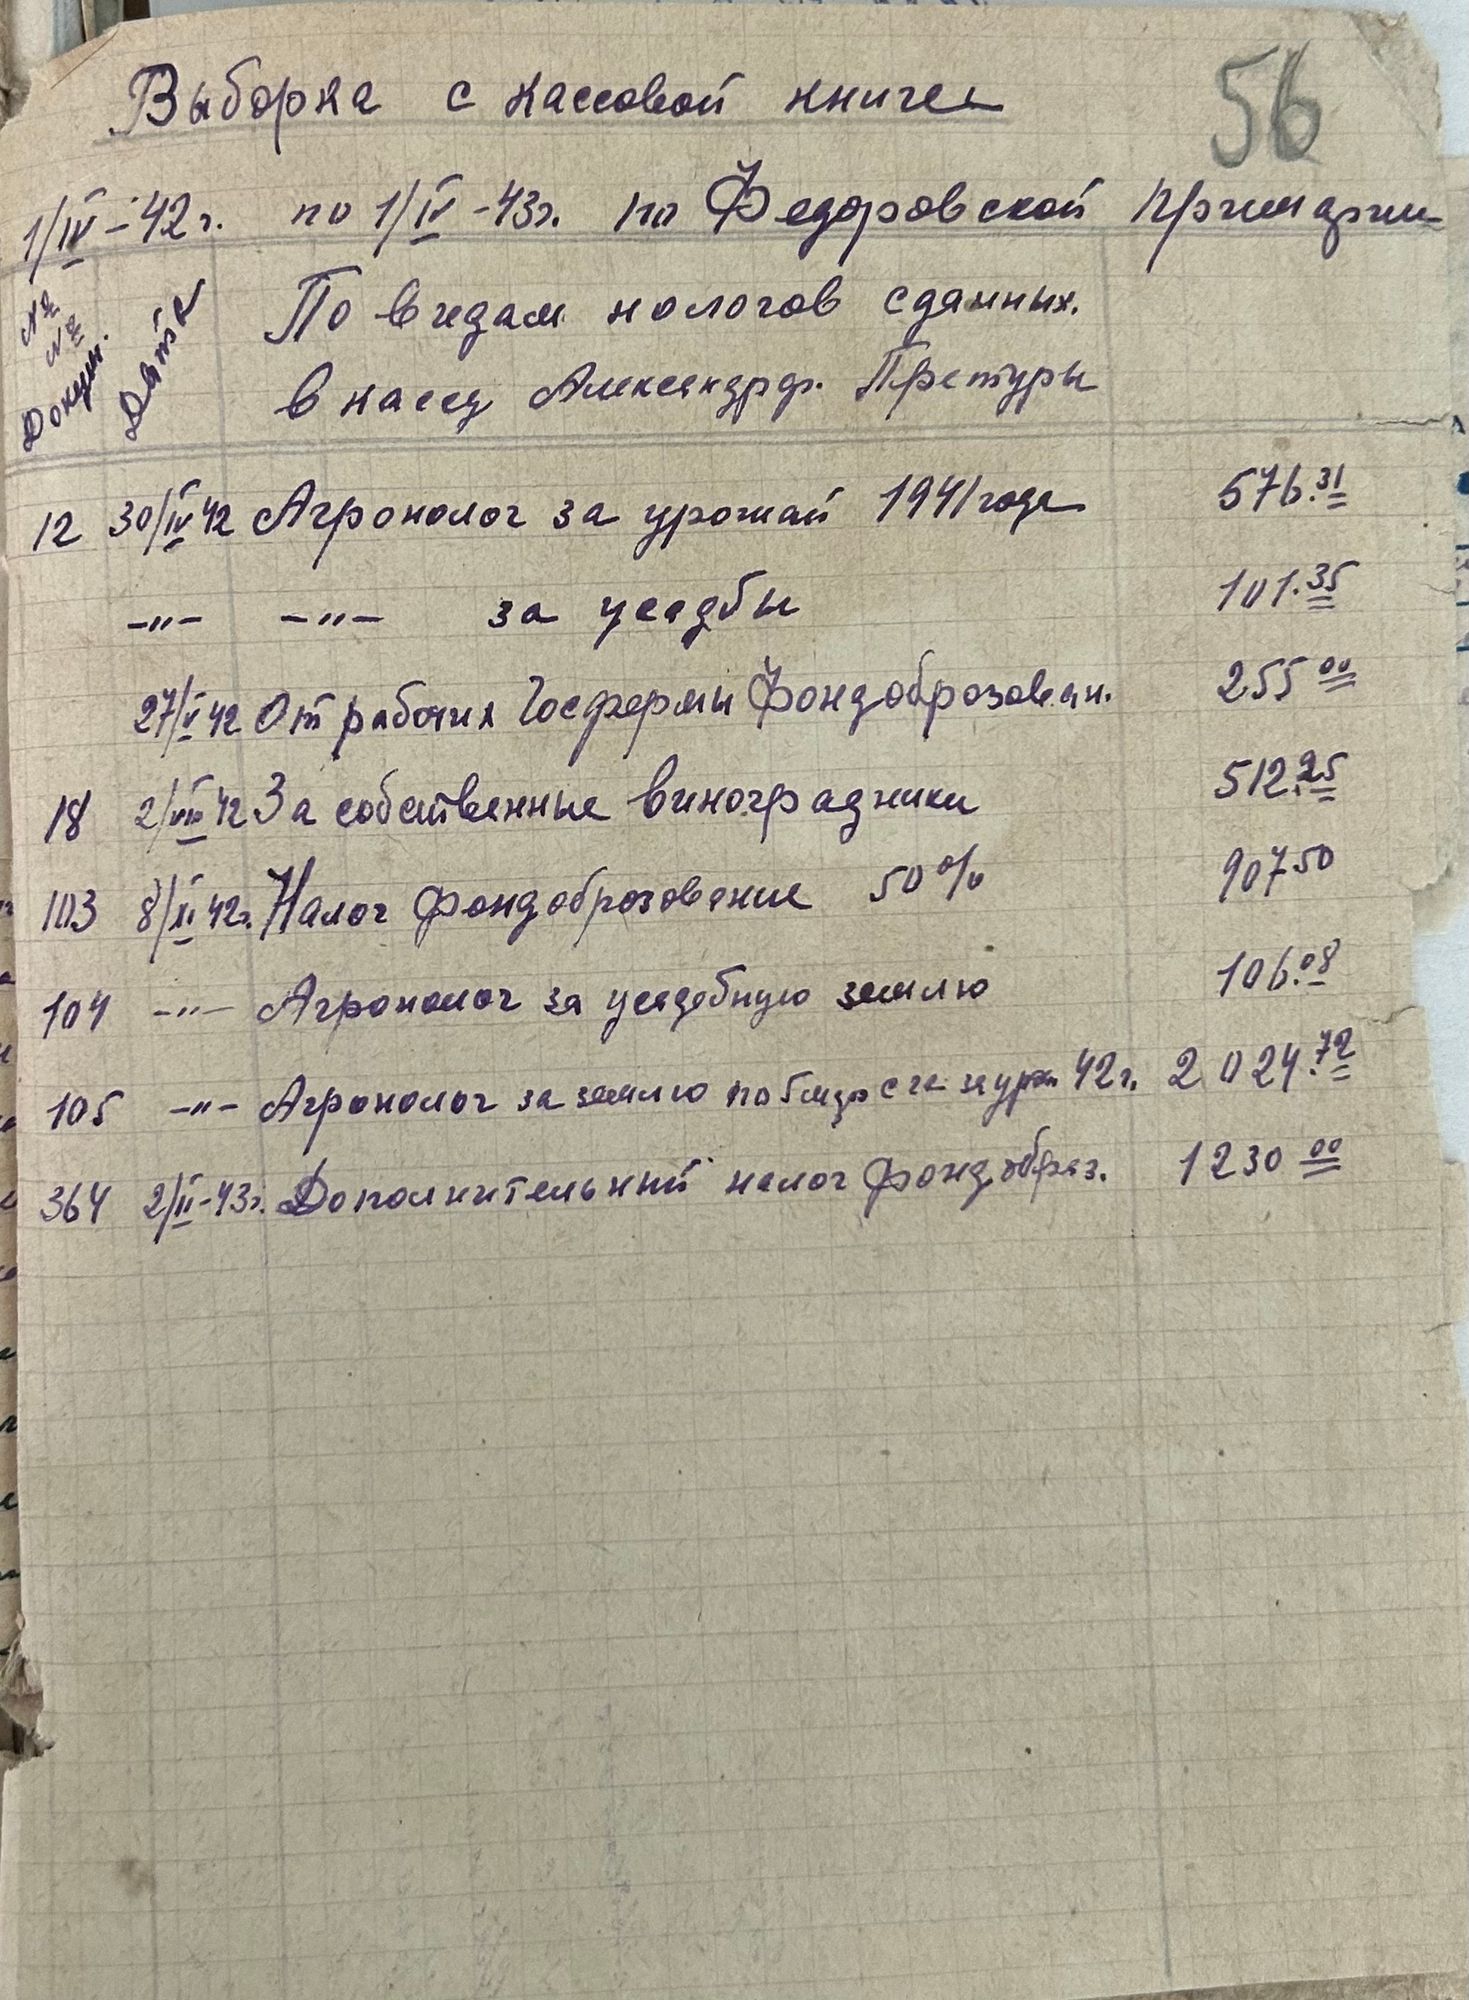 56
Выборка с кассовой книги
1/IV-42г. по 1/IV-43г. по Федоровской
№№ Докум. Дата По видам нологов сданных.
в кассу Александрф. Претуры
12 30/IV 42 Агронолог за урожай 1941 года 576.31
-"- -"- за усадбы 101.35
27/V 42 От рабочих Госфермы Фондоброзован. 255 00
18 2/VIII 42 За собственные виноградники 512.25
103 8/XI 42г. Налог фондоброзование 50% 907 50
104 -"- Агронолог за усадебную землю 106.08
105 -"- Агронолог за землю по 42г. 2024.72
364 2/II-43г. Дополнительный налог фондобраз. 1230 00